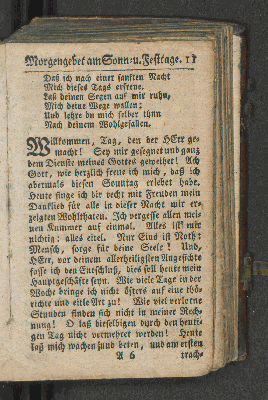 Morgengebet am Sonn- u. Festtage. 11
Daß ich nach einer sanften Nacht
Mich dieses Tags erfreue.
Laß deinen Segen auf mir ruhn,
Mich deine Wege wallen;
Und lehre du mich selber thun
Nach deinem Wohlgefallen.
Willkommen, Tag, den der HErr ge-
macht! Sey mir gesegnet und ganz
dem Dienste meines Gottes geweihet! Ach
Gott, wie herzlich freue ich mich, daß ich
abermals diesen Sonntag erlebt habe.
Heute singe ich dir recht mit Freuden mein
Danklied für alle in dieser Nacht mir er-
zeigten Wohlthaten. Ich vergesse allen mei-
nen Kummer auf einmal. Alles ist mir
nichtig: alles eitel. Nur Eins ist Noth:
Mensch, sorge für deine Seele! Und,
HErr, vor deinem allerheiligsten Angesichte
fasse ich den Entschluß, dies soll heute mein
Hauptgeschäfte seyn. Wie viele Tage in der
Woche bringe ich nicht öfters auf eine thö-
richte und eitle Art zu! Wie viel verlorne
Stunden finden sich nicht in meiner Rech-
nung! O laß dieselbigen durch den heuti-
gen Tag nicht vermehret werden! Heute
laß mich wachen und beten, und am ersten
A 6 trach-